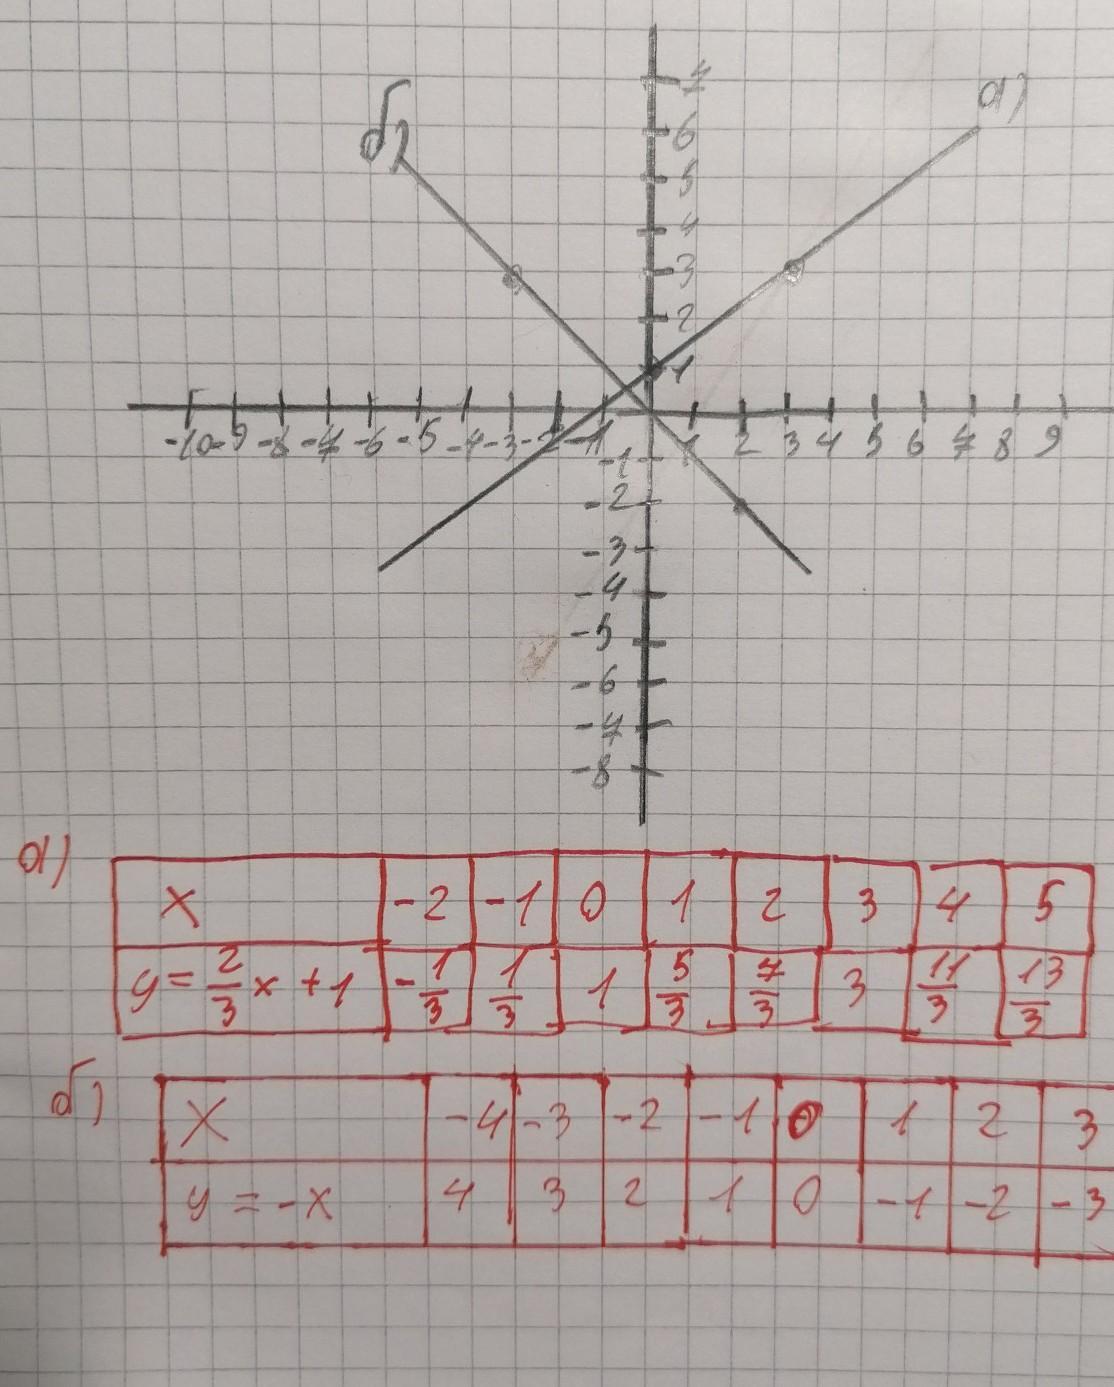 7
а)
б)
6
5
4
3
2
1
-10 -9 -8 -7 -6 -5 -4 -3 -2 -1 1 2 3 4 5 6 7 8 9
-1
-2
-3
-4
-5
-6
-7
-8
а)
x -2 -1 0 1 2 3 4 5
y = 2/3 x + 1 -1/3 1/3 1 5/3 7/3 3 11/3 13/3
б)
x -4 -3 -2 -1 0 1 2 3
y = -x 4 3 2 1 0 -1 -2 -3